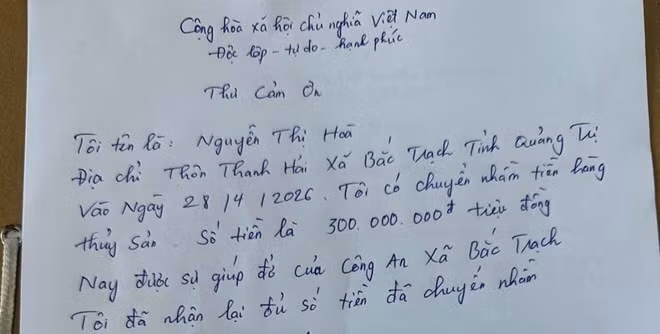 Cộng hòa xã hội chủ nghĩa Việt Nam
Độc lập - tự do - hạnh phúc
Thư Cảm Ơn
Tôi tên là: Nguyễn Thị Hoà
Địa chỉ Thôn Thanh Hải Xã Bắc Trạch Tỉnh Quảng Trị
Vào Ngày 28/4/2026. Tôi có chuyển nhầm tiền hàng
thủy sản. Số tiền là 300.000.000đ triệu đồng
Nay được sự giúp đỡ của Công An Xã Bắc Trạch
Tôi đã nhận lại đủ số tiền đã chuyển nhầm